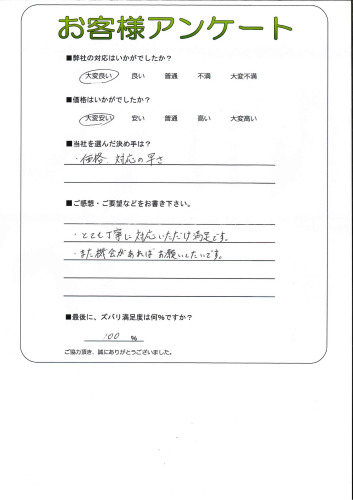 お客様アンケート
■弊社の対応はいかがでしたか？
大変良い 良い 普通 不満 大変不満
■価格はいかがでしたか？
大変安い 安い 普通 高い 大変高い
■当社を選んだ決め手は？
・価格 対応の早さ
■ご感想・ご要望などをお書き下さい。
・とても丁寧に対応いただけ満足です。
・また機会があればお願いしたいです。
■最後に、ズバリ満足度は何%ですか？
100 %
ご協力頂き、誠にありがとうございました。